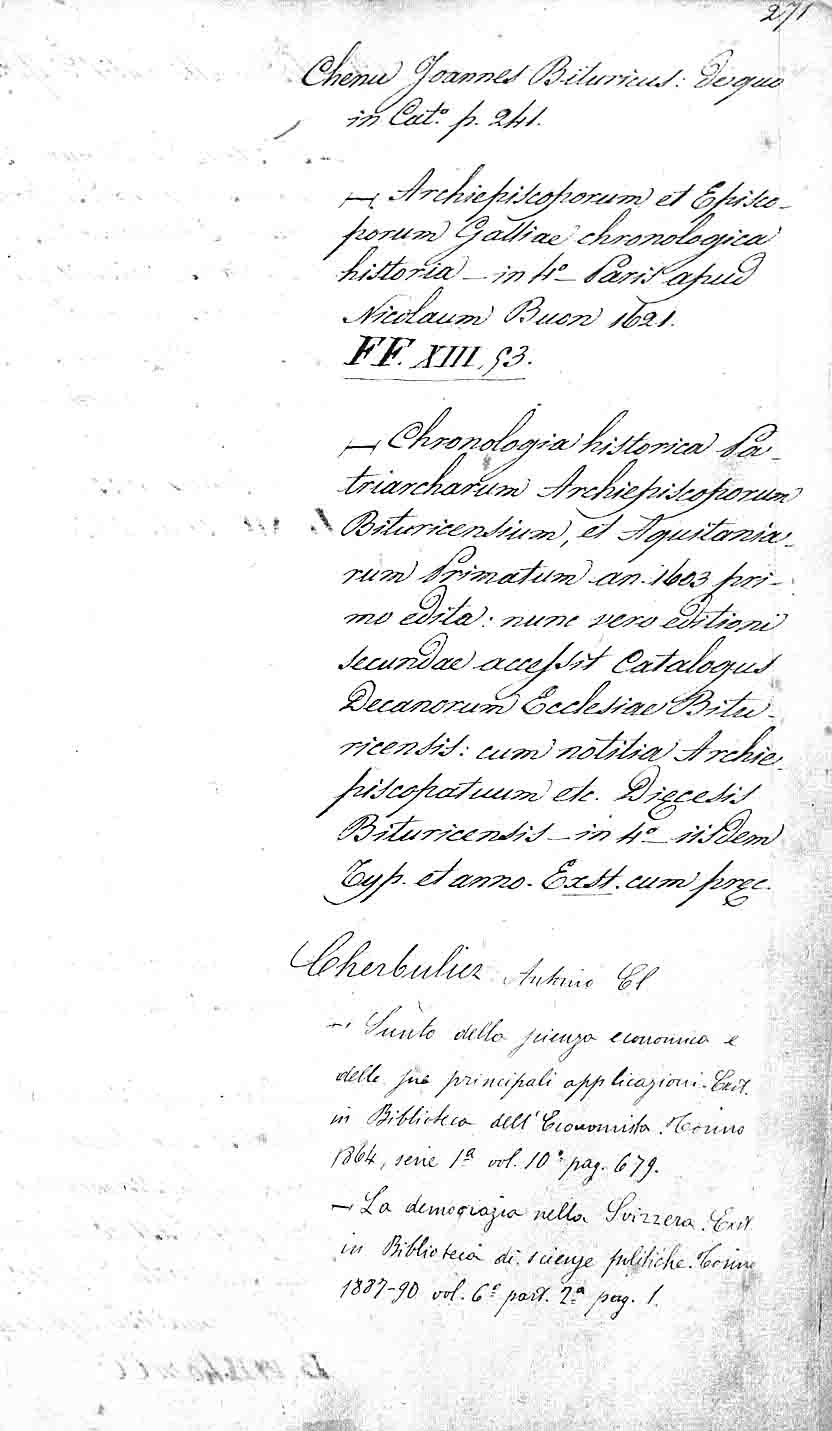 271
Chenu Joannes Bituricus: de quo
in Cat.º p. 241.
— Archiepiscoporum et Episco-
porum Galliae chronologica
historia - in 4º - Paris apud
Nicolaum Buon 1621.
FF. XIII, 53.
— Chronologia historica Pa-
triarcharum Archiepiscoporum
Bituricensium, et Aquitania-
rum Primatum an. 1603 pri-
mo edita: nunc vero editioni
secundae accessit Catalogus
Decanorum Ecclesiae Bitu-
ricensis: cum notitia Archie-
piscopatuum etc. Dięcesis
Bituricensis - in 4º - iisdem
Typ. et anno. Exst. cum pręc.
Cherbuliez Antonio El
— Sunto della scienza economica e
delle sue principali applicazioni. Exst.
in Biblioteca dell'Economista. Torino
1864, serie 1ª vol. 10º pag. 679.
— La democrazia nella Svizzera. Exst.
in Biblioteca di scienze politiche. Torino
1887-90 vol. 6º part. 2ª pag. 1.